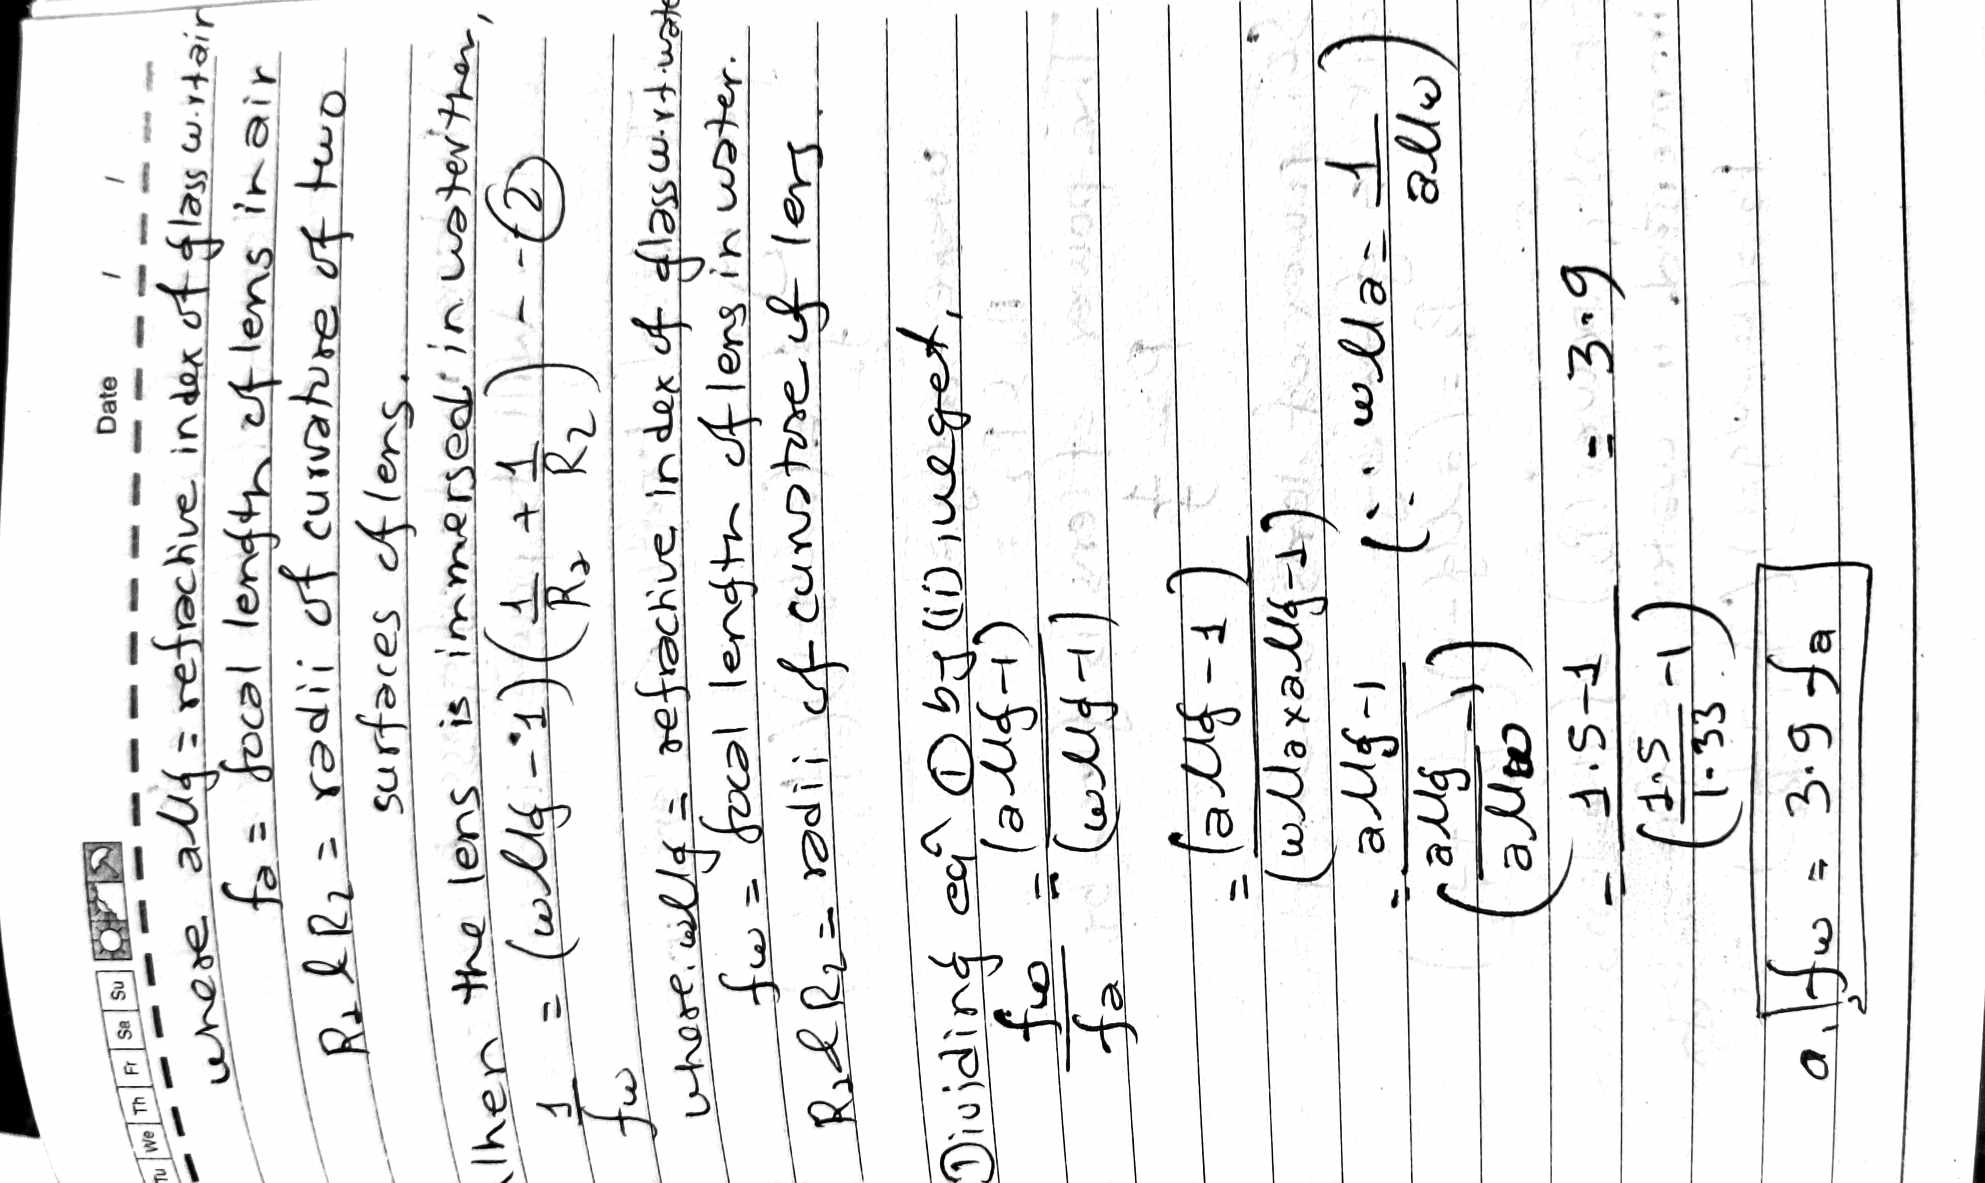 Tu We Th Fr Sa Su
Date / /
where aμg = refractive index of glass w.r.t air
fa = focal length of lens in air
R1 & R2 = radii of curvature of two
surfaces of lens.
When the lens is immersed in water then,
1/fw = (wμg - 1)(1/R1 + 1/R2) - - - ②
where, wμg = refractive index of glass w.r.t. wate
fw = focal length of lens in water.
R1 & R2 = radii of curvature of lens.
Dividing eqn ① by (ii), we get,
fw/fa = (aμg-1)/(wμg-1)
= (aμg - 1)/(wμa x aμg - 1)
= aμg - 1/(aμg/aμw - 1) (∵ wμa = 1/aμw)
= 1.5-1/(1.5/1.33 - 1) = 3.9
a, fw = 3.9 fa